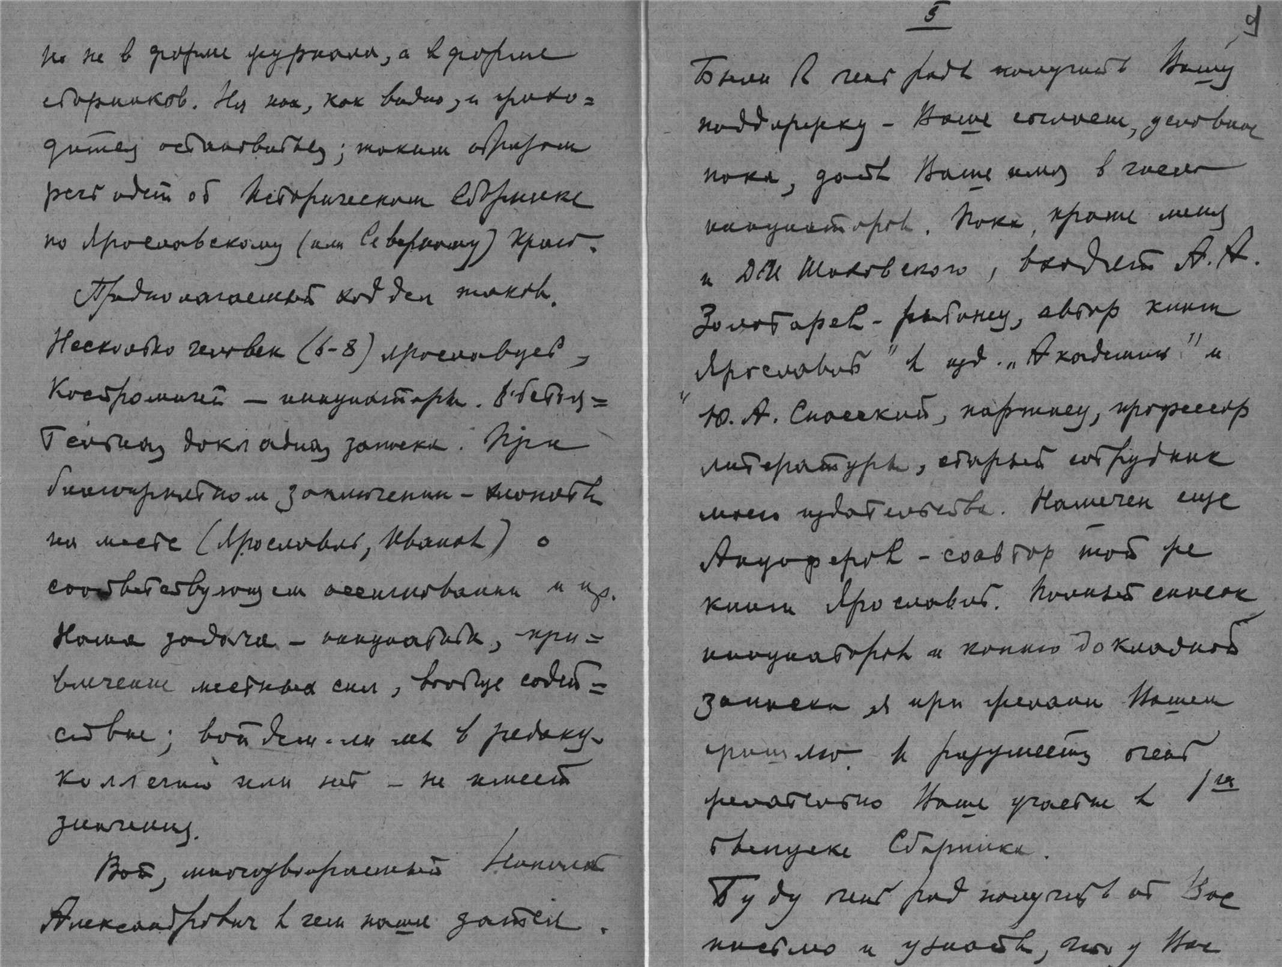 но не в форме журнала, а в форме
сборников. На нем, как видно, и прихо=
дится остановиться; таким образом
речь идет об Историческом Сборнике
по Ярославскому (или Северному) краю.
Предполагаемый ход дел таков.
Несколько человек (6-8) ярославцев,
костромичей — инициаторы. Обстоя=
тельная докладная записка. При
благоприятном заключении – хлопоты
на месте (Ярославль, Иванов) о
соответствующем ассигновании и пр.
Наша задача – инициатива, при=
влечение местных сил, вообще содей=
ствие; войдем-ли мы в редакц.
коллегию или нет – не имеет
значения.
Вот, многоуважаемый
Александрович в чем наша затея.
5
9
Были б очень рады получить Вашу
поддержку – Ваше согласие, условное
пока, дать Ваше имя в число
инициаторов. Пока, кроме меня
и ДИ Шаховского, входят А. А.
Золотарев – рыбинец, автор книги
"Ярославль" в изд. „Академии" и
Ю. А. Спасский, партиец, профессор
литературы, старый сотрудник
моего издательства. Намечен еще
Анциферов – соавтор той же
книги Ярославль. Полный список
инициаторов и копию докладной
записки я при желании Вашем
пришлю. И разумеется очень
желательно Ваше участие в 1м
выпуске Сборника.
Буду очень рад получить от Вас
письмо и узнать, что у Вас